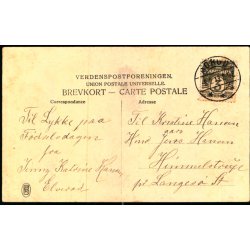 VERDENSPOSTFORENINGEN.
UNION POSTALE UNIVERSELLE.
BREVKORT — CARTE POSTALE
Correspondance
Adresse
Til Lykke paa
Fødselsdagen
fra
Jenny Katrine Hansen
Til Kirstine Hansen
Hans Hansen
Himmelstrup
pr Langesø St